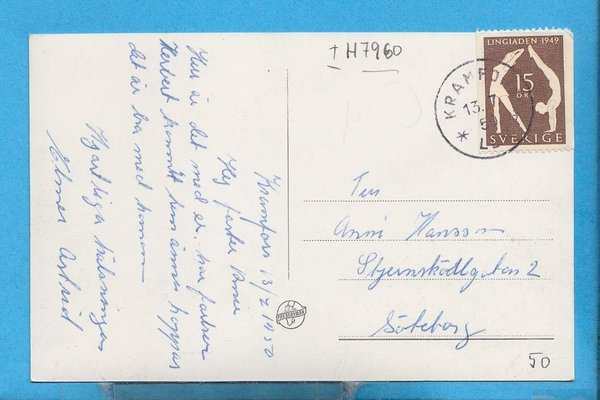 † H7960
LINGIADEN 1949
15
ÖRE
SVERIGE
KRAMFO
13.7
Kramfors 13/7 1950
Hej faster Anni
Hur är det med er. har farbror
Herbert kommit hem ännu hoppas
det är bra med honom
Hjärtliga hälsningar
Elmer Astrid
Fru
Anni Hansson
Stjernsköldsgatan 2
Göteborg
PRESSBYRÅN
50